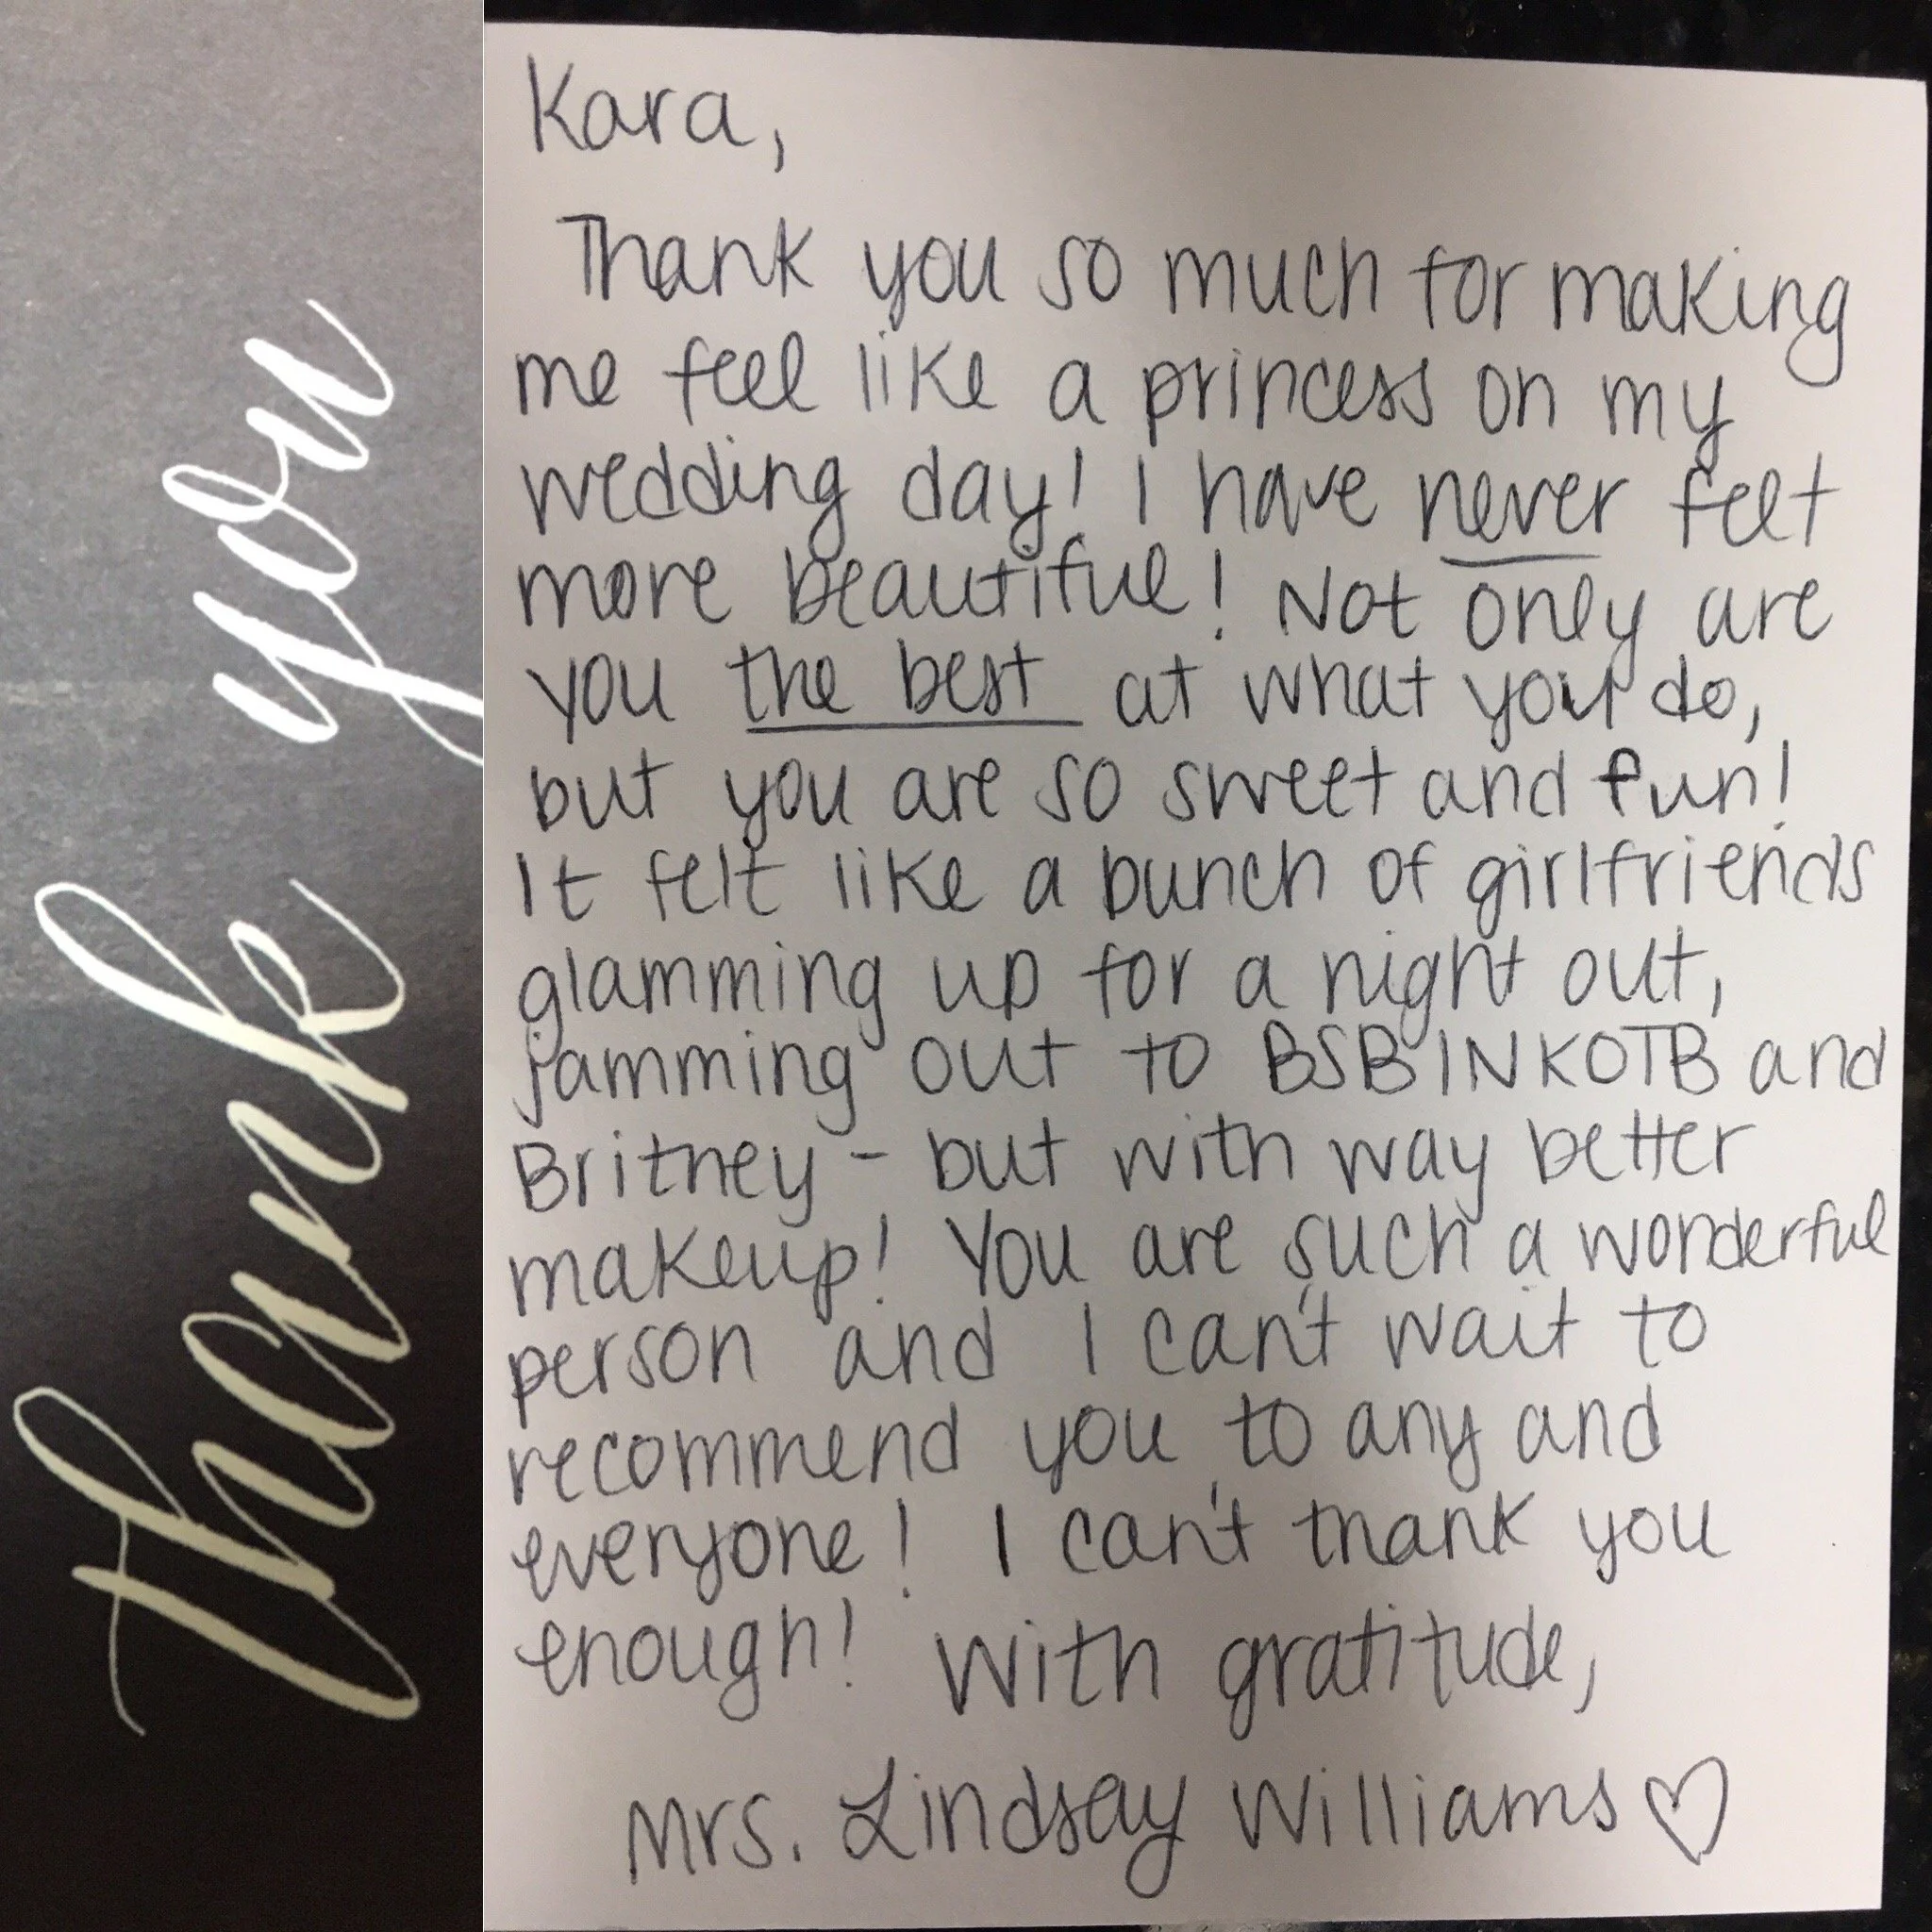 thank you
Kara,
Thank you so much for making
me feel like a princess on my
wedding day! I have never felt
more beautiful! Not only are
you the best at what you do,
but you are so sweet and fun!
It felt like a bunch of girlfriends
glamming up for a night out,
jamming out to BSB/NKOTB and
Britney - but with way better
makeup! You are such a wonderful
person and I can't wait to
recommend you to any and
everyone! I can't thank you
enough! With gratitude,
Mrs. Lindsay Williams ♡